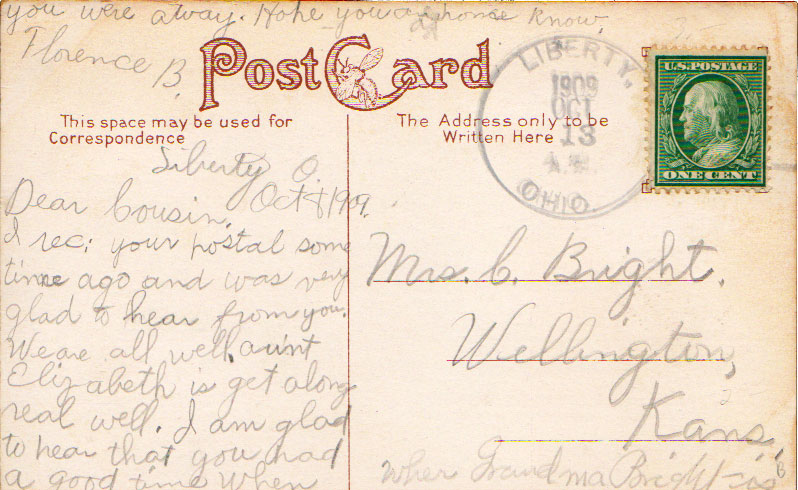 you were away. Hope you are home know.
Florence
B.
Post Card
This space may be used for
Correspondence
The Address only to be
Written Here
LIBERTY,
1909
OCT
13
A.M.
OHIO.
U.S. POSTAGE
ONE CENT
Liberty O.
Oct 1909.
Dear Cousin,
I rec; your postal some
time ago and was very
glad to hear from you.
We are all well. aunt
Elizabeth is get along
real well. I am glad
to hear that you had
a good time when
Mrs. C. Bright.
Wellington,
Kans.
Grandma Bright